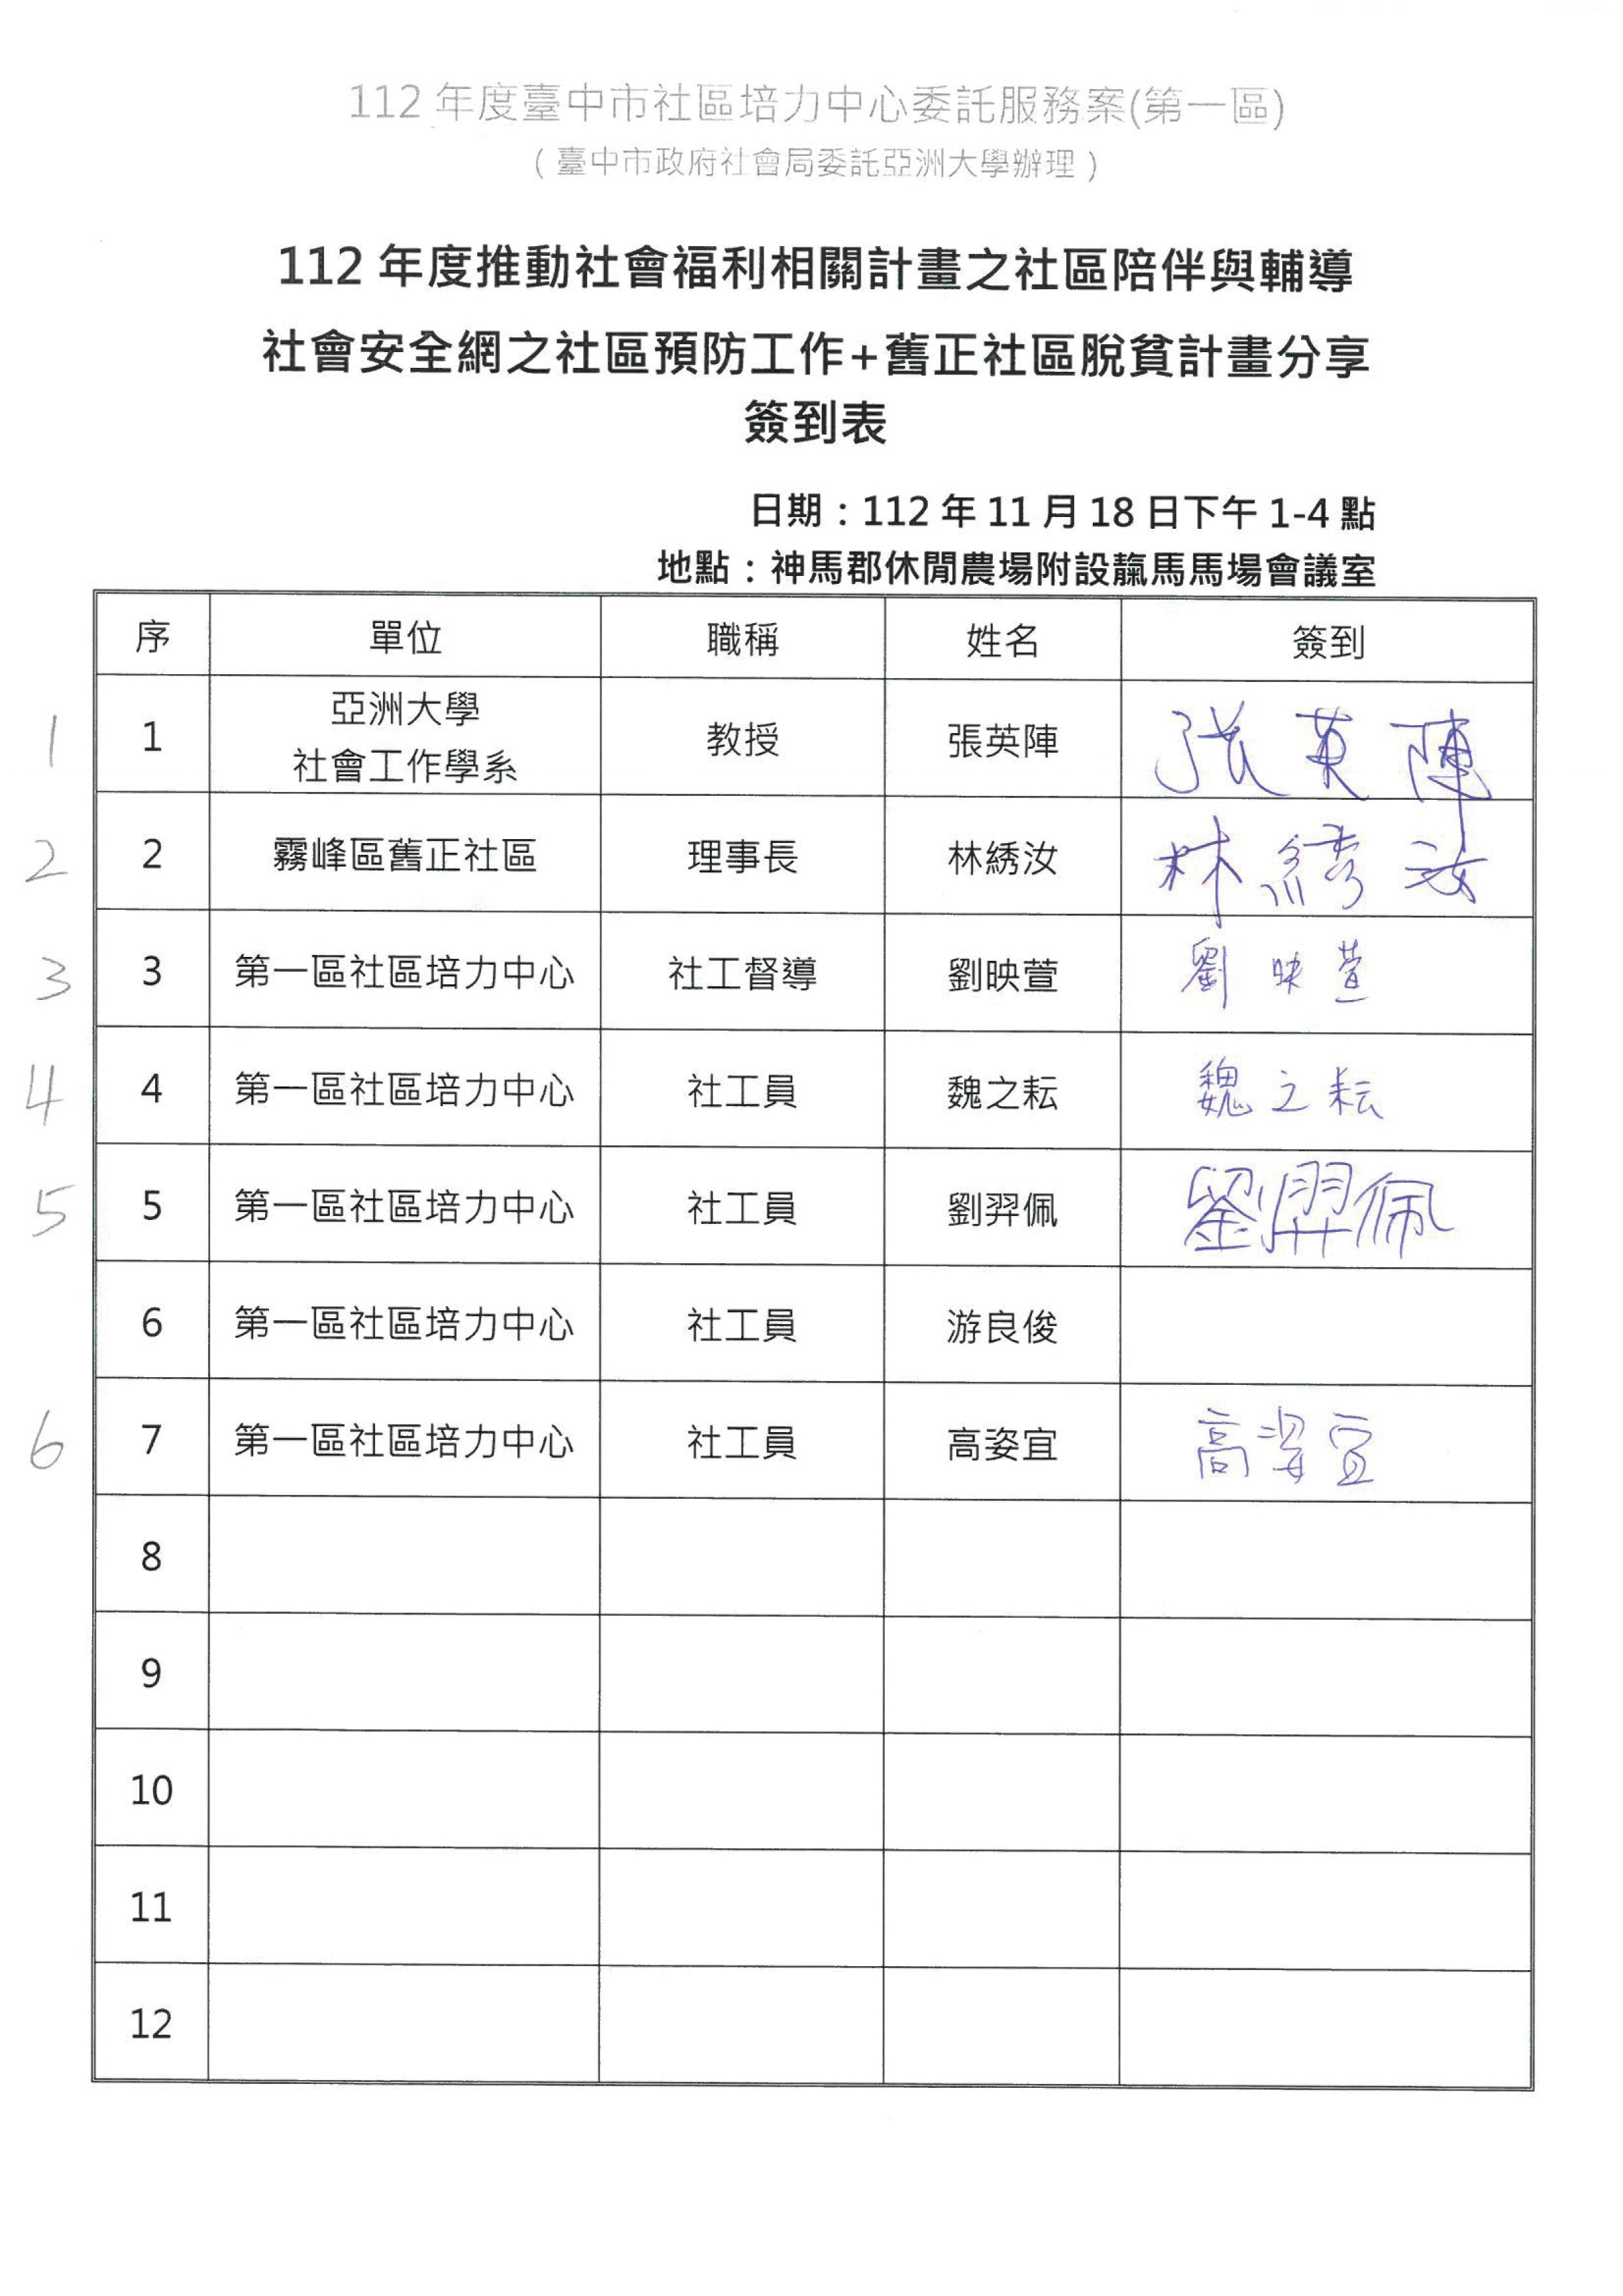 112 年度臺中市社區培力中心委託服務案(第一區)
(臺中市政府社會局委託亞洲大學辦理)
112 年度推動社會福利相關計畫之社區陪伴與輔導
社會安全網之社區預防工作+舊正社區脫貧計畫分享
簽到表
日期：112 年 11 月 18 日下午 1-4 點
地點：神馬郡休閒農場附設驫馬馬場會議室
序 單位 職稱 姓名 簽到
1 1 亞洲大學
社會工作學系 教授 張英陣 張英陣
2 2 霧峰區舊正社區 理事長 林綉汝 林綉汝
3 3 第一區社區培力中心 社工督導 劉映萱 劉映萱
4 4 第一區社區培力中心 社工員 魏之耘 魏之耘
5 5 第一區社區培力中心 社工員 劉羿佩 劉羿佩
6 第一區社區培力中心 社工員 游良俊
6 7 第一區社區培力中心 社工員 高姿宜 高姿宜
8
9
10
11
12